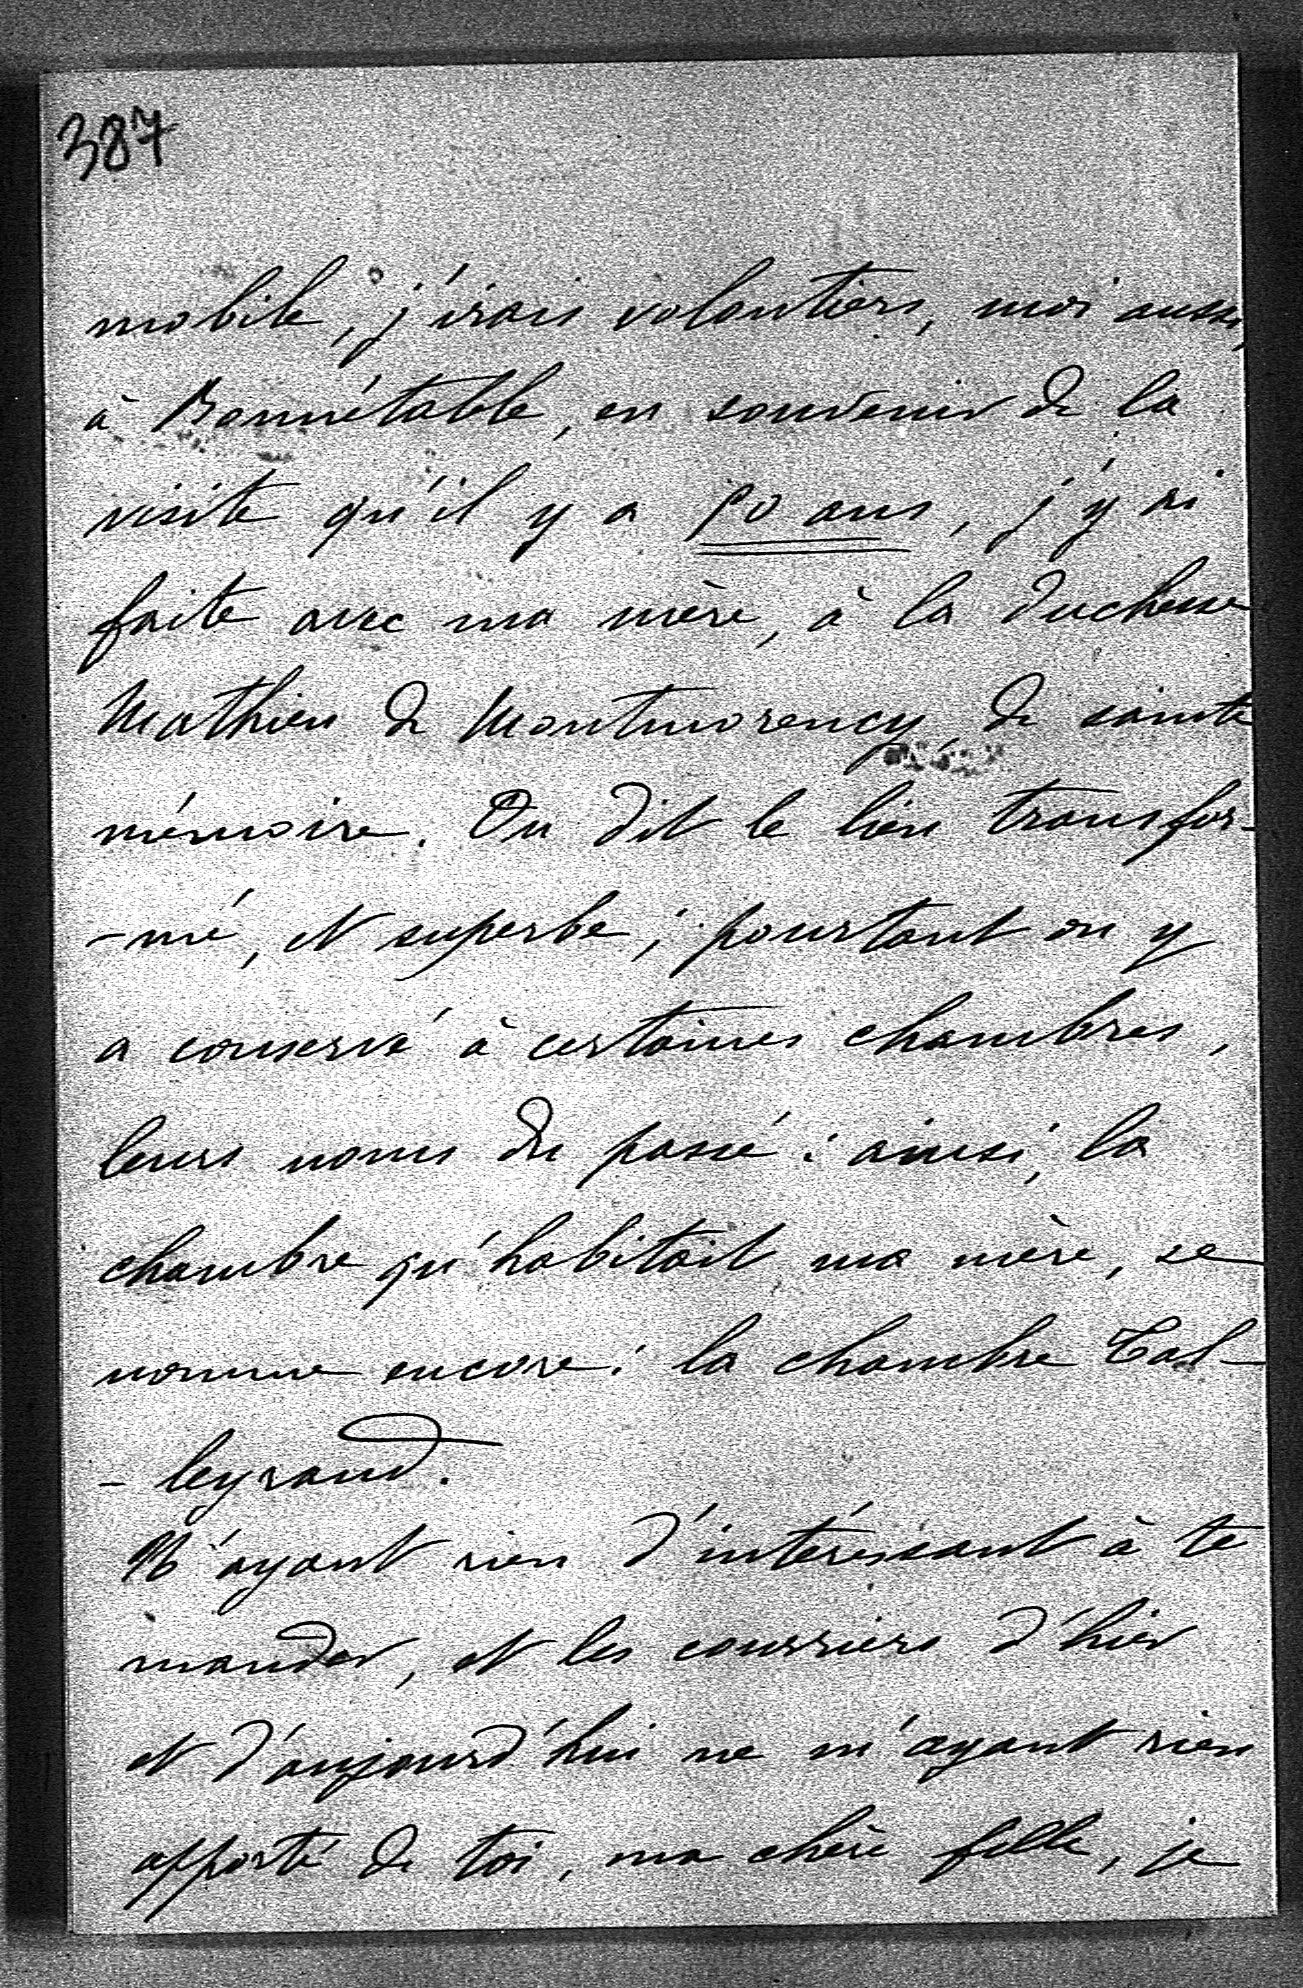 387
mobile, j'irais volontiers, moi aussi,
à Bonnétable, en souvenir de la
visite qu'il y a 50 ans, j'y ai
faite avec ma mère, à la duchesse
Mathieu de Montmorency, de sainte
mémoire. On dit le lieu transfor-
-mé, et superbe; pourtant on y
a conservé à certaines chambres,
leurs noms du passé: ainsi, la
chambre qu'habitait ma mère, se
nomme encore: la chambre Tal-
-leyrand.
N'ayant rien d'intéressant à te
mander, et les courriers d'hier
et d'aujourd'hui ne m'ayant rien
apporté de toi, ma chère fille, je